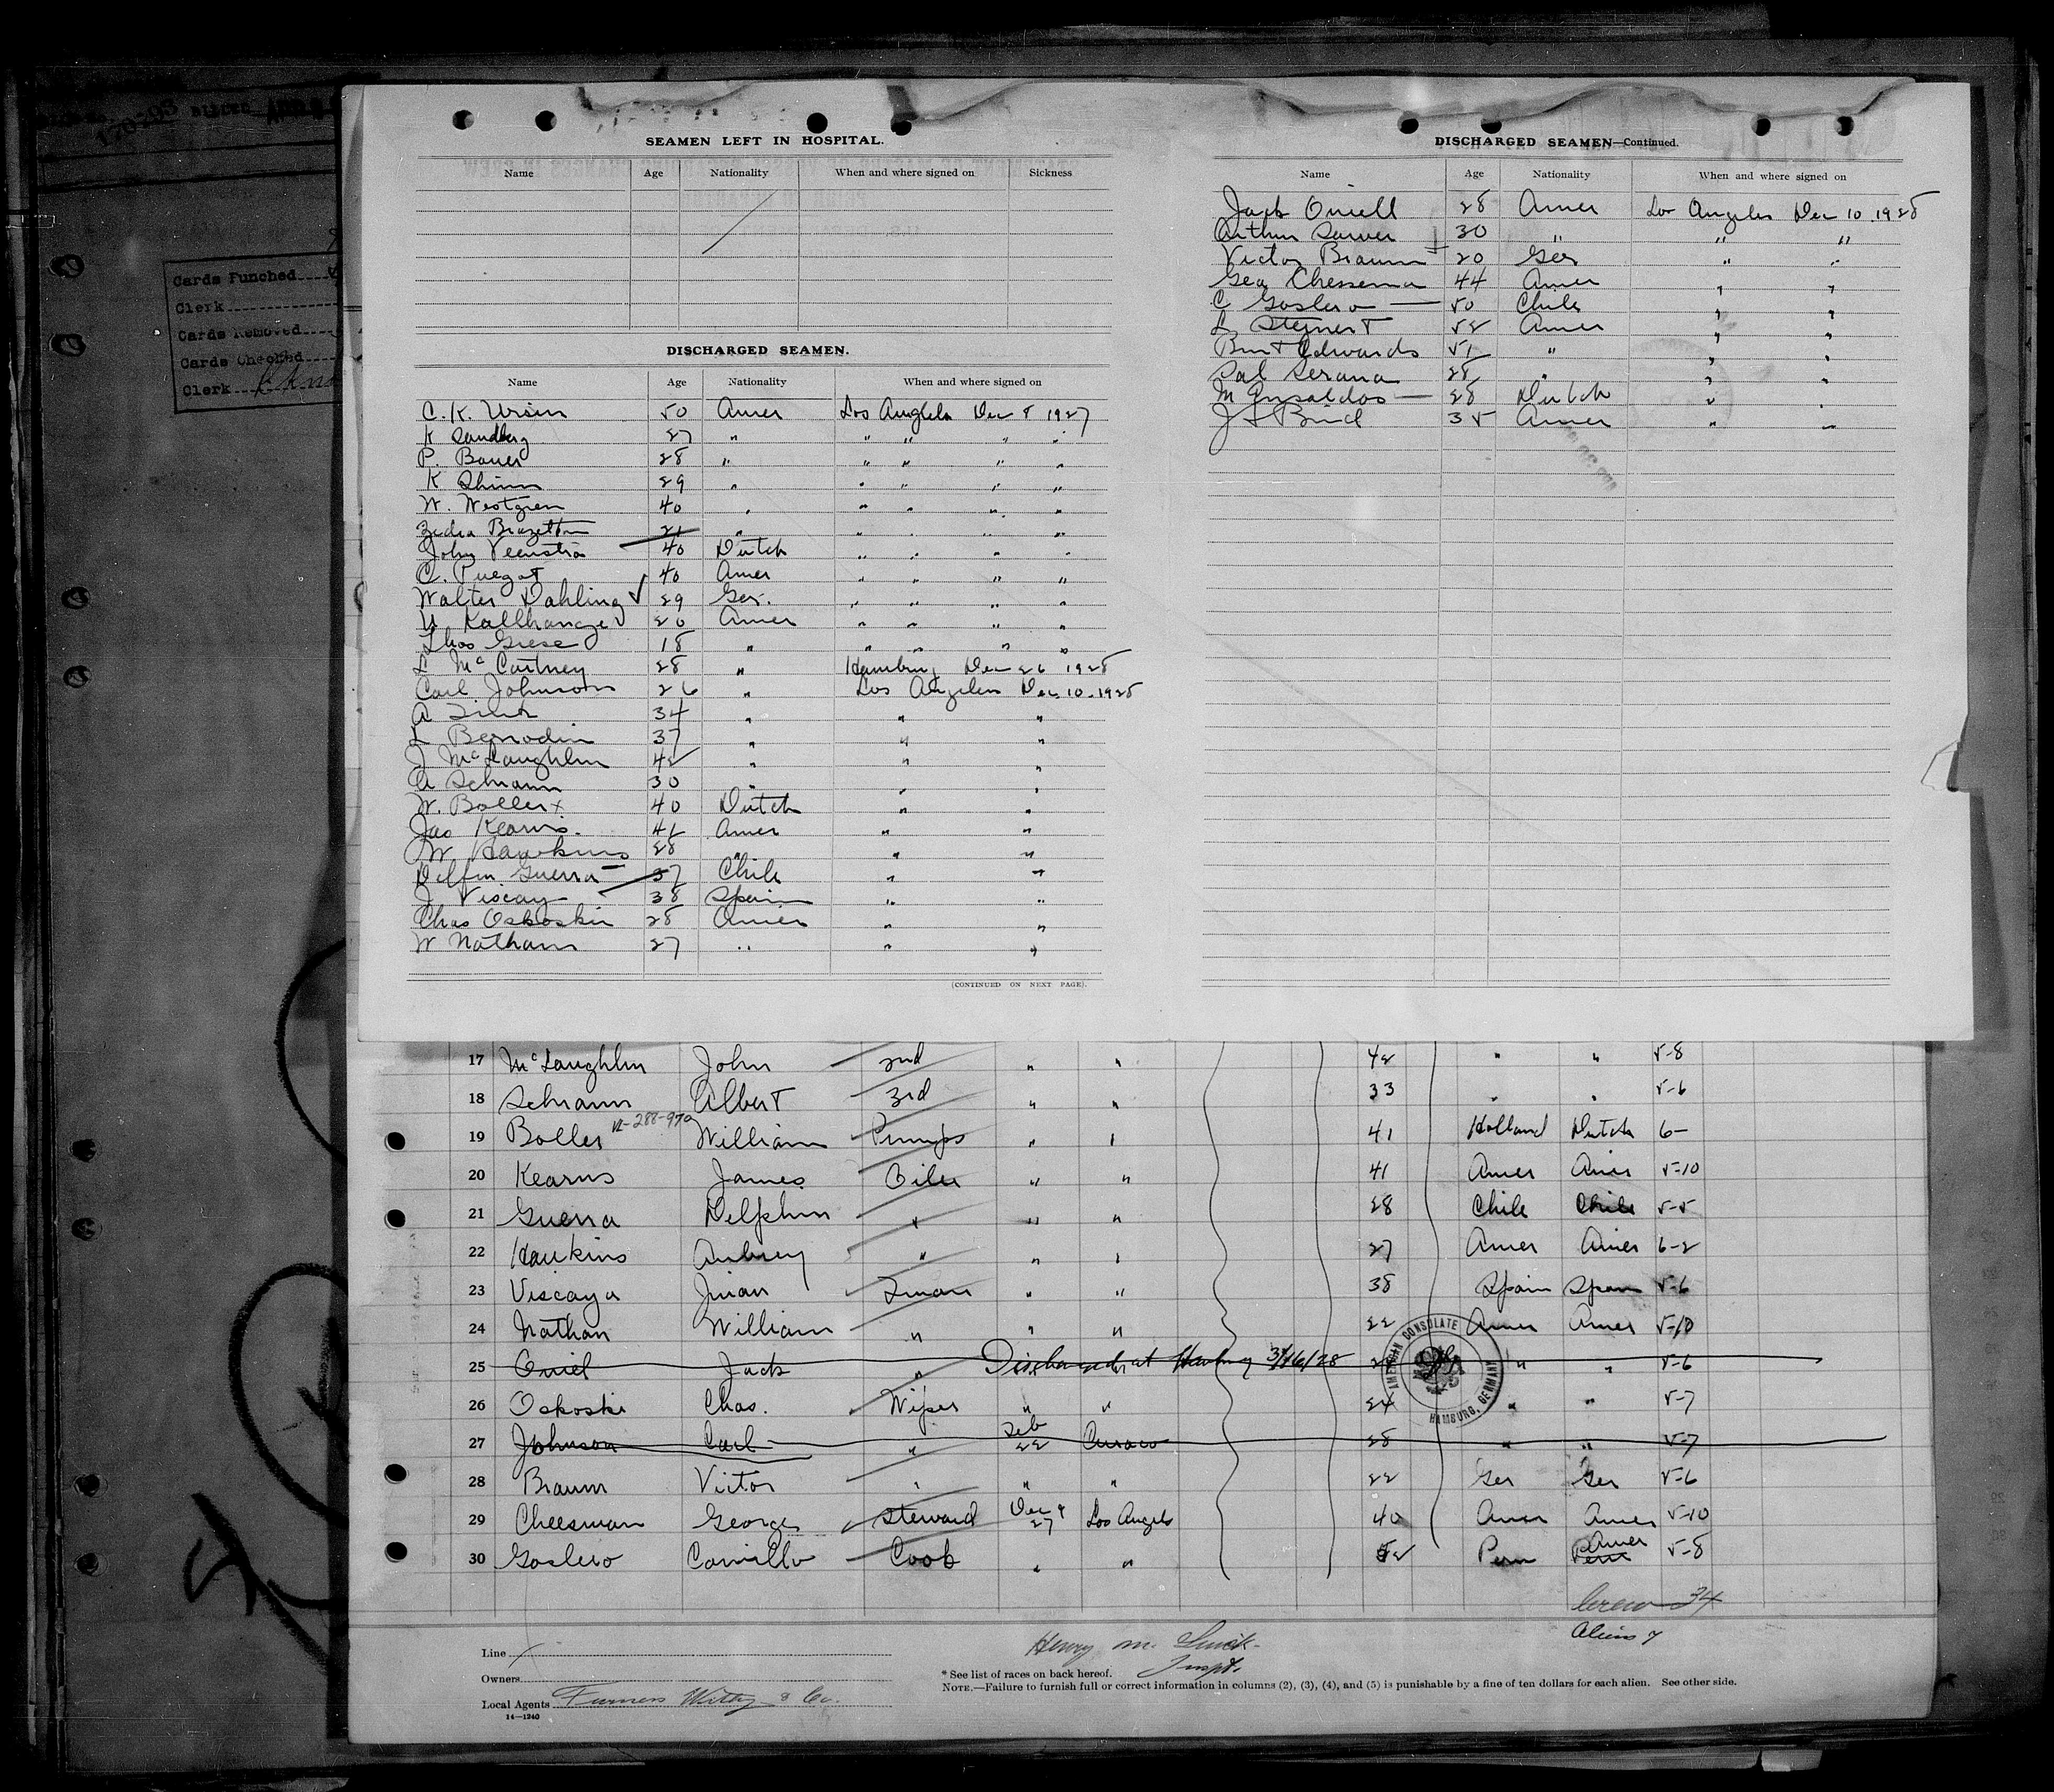 170-203
Cards Punched
Clerk
Cards Removed
Cards Checked
Clerk
SEAMEN LEFT IN HOSPITAL.
Name Age Nationality When and where signed on Sickness
DISCHARGED SEAMEN.
Name Age Nationality When and where signed on
C. K. 50 Amer Los Angeles Dec 8 1927
K Sandberg 27 " " " " "
P. Bauer 28 " " " " "
K Shinn 29 " " " " "
W. Westgren 40 " " " " "
21 " " " " "
John Veenstra 40 Dutch " " " "
C. Puegot 40 Amer " " " "
Walter Dahling ✓ 29 Ger. " " " "
20 Amer " " " "
Thos Griese 18 " " " " "
L McCartney 28 " Hamburg Dec 26 1928
Carl Johnson 26 " Los Angeles Dec. 10. 1928
A 34 " " "
L Berrodin 37 " " "
J McLaughlin 42 " " "
A Schramm 30 " " "
W. Boller x 40 Dutch " "
Jas Kearns. 42 Amer " "
W Hawkins 28 " " "
Delfin Guerra 37 Chile " "
J Viscay 38 Spain " "
Chas Oskoskie 28 Amer " "
W Nathan 27 " " "
(CONTINUED ON NEXT PAGE).
DISCHARGED SEAMEN—Continued.
Name Age Nationality When and where signed on
Jack Oniell 28 Amer Los Angeles Dec 10. 1928
Arthur 30 " " "
Victor Braum 20 Ger " "
Geo Chessema 44 Amer " "
C Goslero 50 Chile " "
L Steinert 52 Amer " "
Burt Edwards 51 " " "
Pal Serana 28 " " "
M 28 Dutch " "
J 35 Amer " "
17 McLaughlin John 2nd " " 42 " " 5-8
18 Schramm Albert 3rd " " 33 " " 5-6
19 Boller William Pumps " " 41 Holland Dutch 6-
20 Kearns James Oiler " " 41 Amer Amer 5-10
21 Guerra Delphin " " " 28 Chile Chile 5-5
22 Hawkins Aubrey " " " 27 Amer Amer 6-2
23 Viscaya Juan Fman " " 38 Spain Spain 5-6
24 Nathan William " " " 22 Amer Amer 5-10
25 Oniel Jack " Discharged at Hamburg 3/16/28 " " 5-6
26 Oskoski Chas. Wiper " " 24 " " 5-7
27 Johnson Carl " Feb 22 Curacao 28 " " 5-7
28 Braum Victor " " " 22 Ger Ger 5-6
29 Cheesman George Steward Dec 9 27 Los Angeles 40 Amer Amer 5-10
30 Goslero Camillo Cook " " 52 Peru Peru Amer 5-8
AMERICAN CONSULATE
HAMBURG, GERMANY
Crew 34
Aliens 7
Line
Owners
Local Agents Furness Withy & Co.
14—1240
Henry M.
Inspt.
* See list of races on back hereof.
NOTE.—Failure to furnish full or correct information in columns (2), (3), (4), and (5) is punishable by a fine of ten dollars for each alien. See other side.